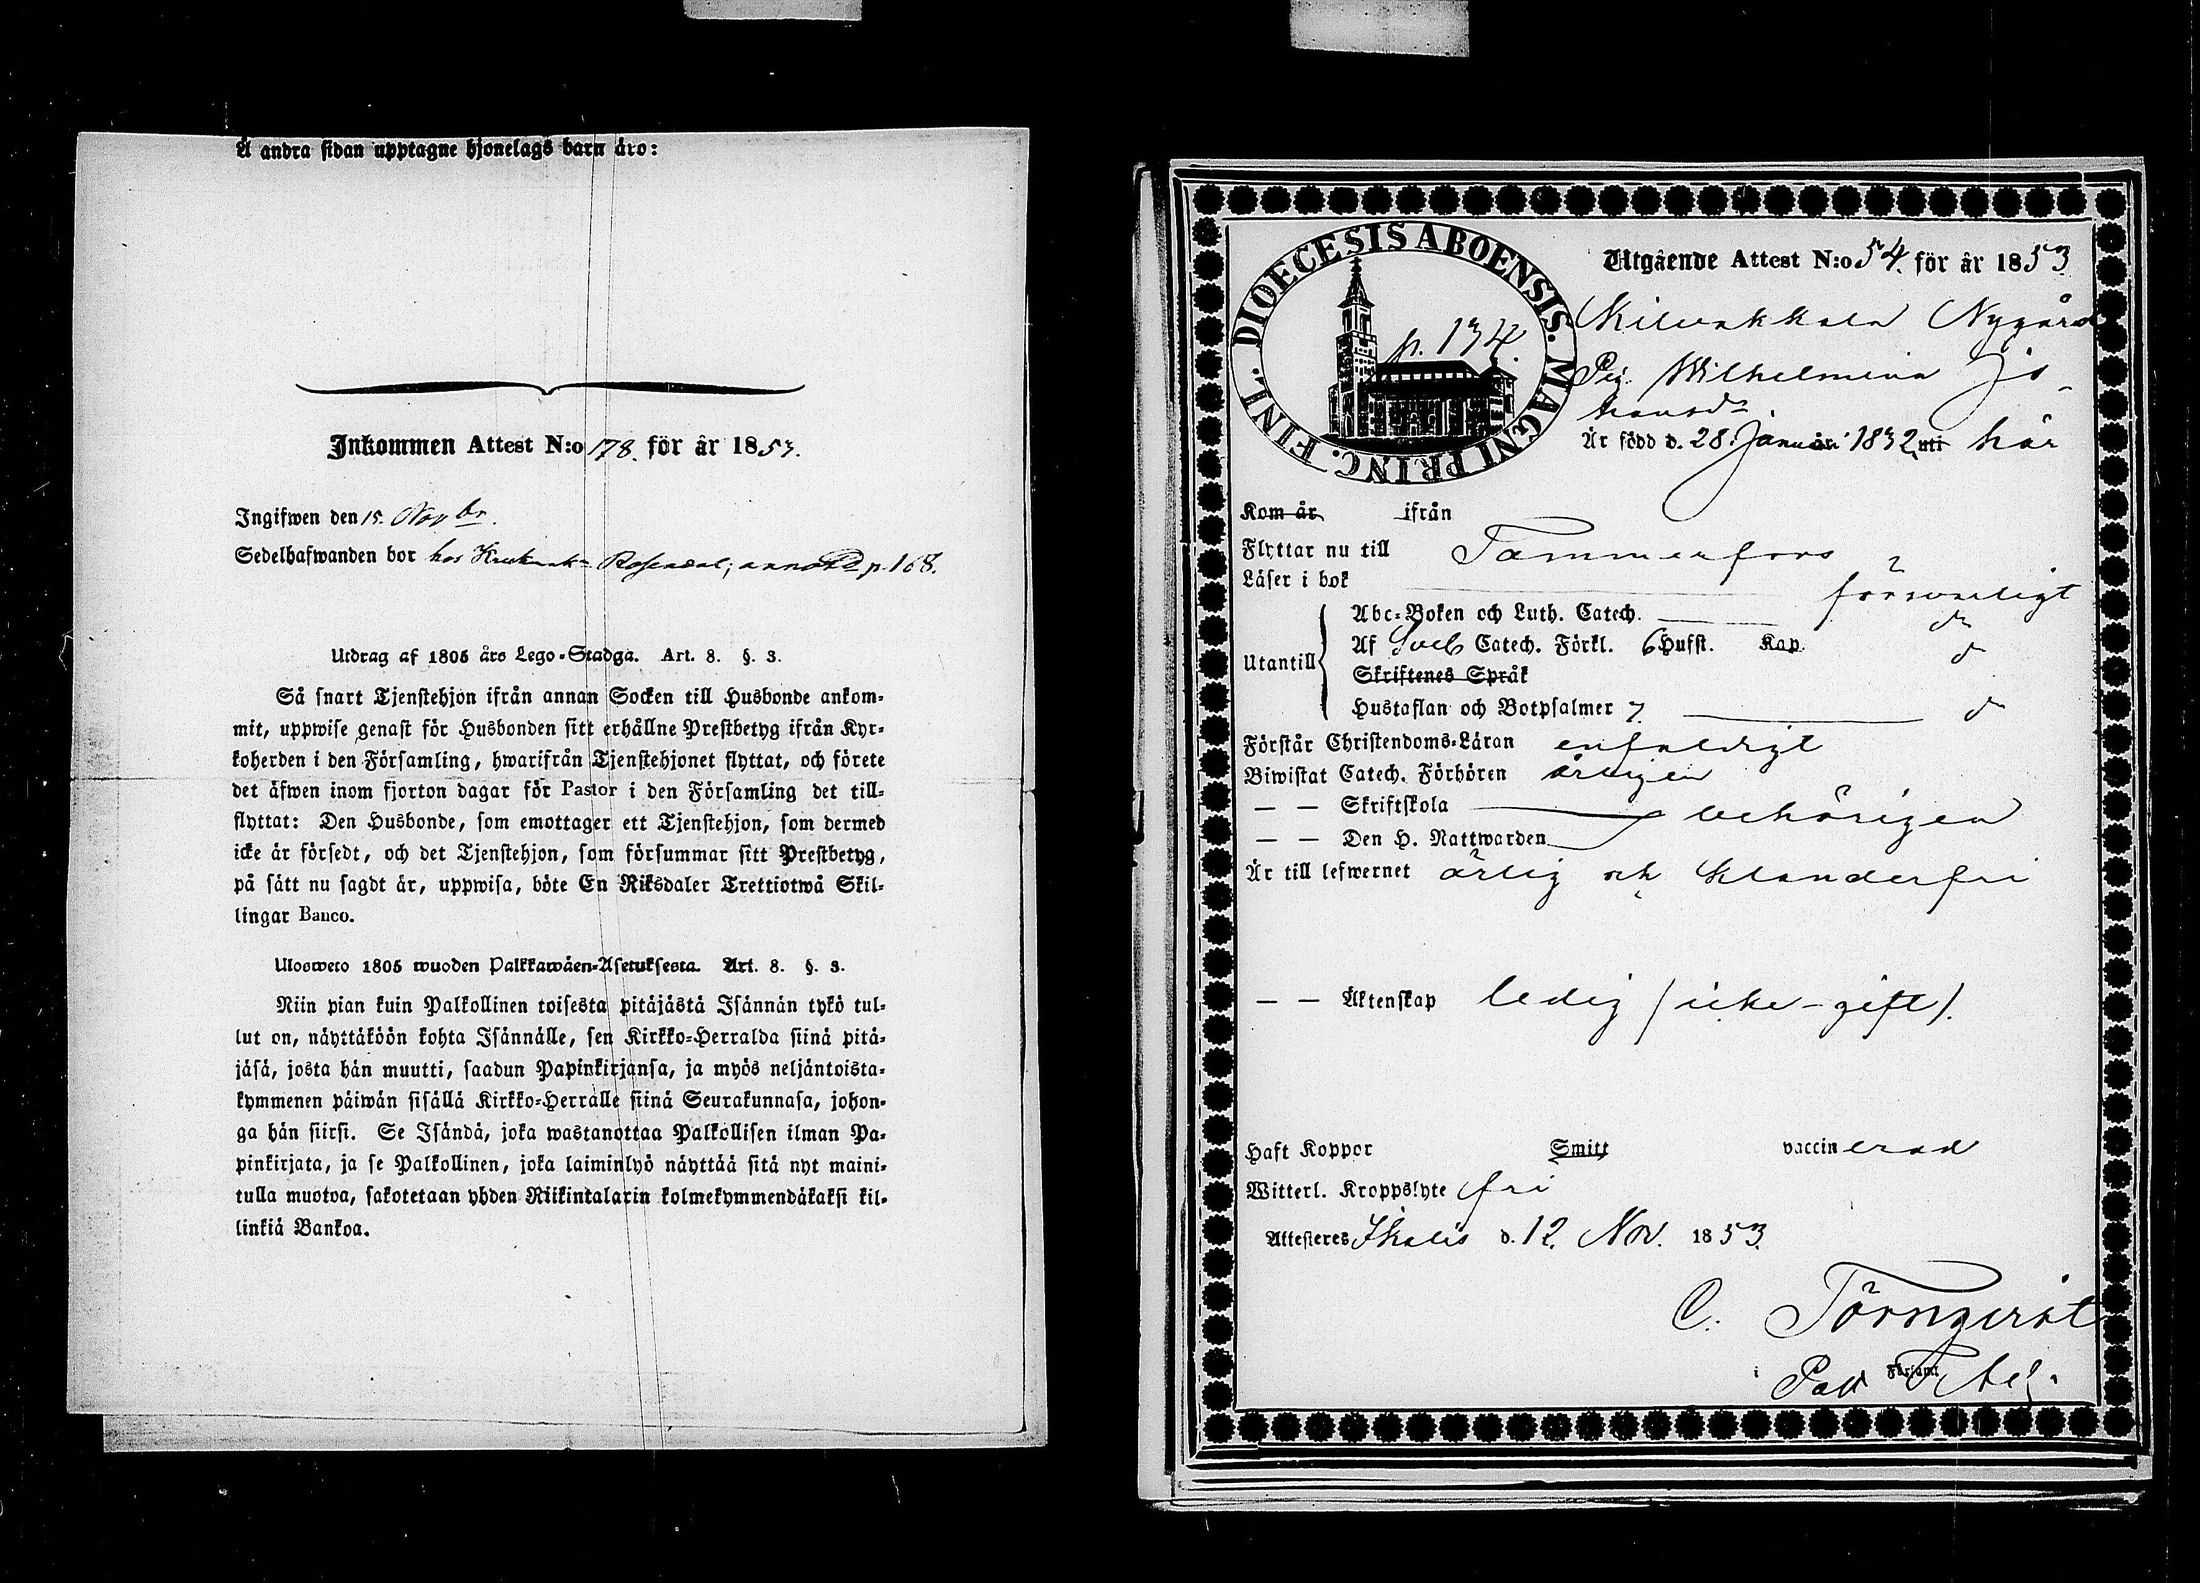 Å andra sidan upptagne hjonelags barn äro:
Inkommen Attest N:o 178. för år 1853.
Ingifwen den 15. Novbr.
Sedelhafwanden bor hos Rosendal; annot. p. 168.
Utdrag af 1805 års Lego-Stadga. Art. 8. §. 3.
Så snart Tjenstehjon ifrån annan Socken till Husbonde ankom-
mit, uppwise genast för Husbonden sitt erhållne Prestbetyg ifrån Kyr-
koherden i den Församling, hwarifrån Tjenstehjonet flyttat, och förete
det äfwen inom fjorton dagar för Pastor i den Församling det till-
flyttat: Den Husbonde, som emottager ett Tjenstehjon, som dermed
icke är försedt, och det Tjenstehjon, som försummar sitt Prestbetyg,
på sätt nu sagdt är, uppwisa, böte En Riksdaler Trettiotwå Skil-
lingar Banco.
Ulosweto 1805 wuoden Palkkawäen-Asetuksesta. Art. 8. §. 3.
Niin pian kuin Palkollinen toisesta pitäjästä Isännän tykö tul-
lut on, näyttäköön kohta Isännälle, sen Kirkko-Herralda siinä pitä-
jäsä, josta hän muutti, saadun Papinkirjansa, ja myös neljäntoista-
kymmenen päiwän sisällä Kirkko-Herralle siinä Seurakunnasa, johon-
ga hän siirsi. Se Isändä, joka wastanottaa Palkollisen ilman Pa-
pinkirjata, ja se Palkollinen, joka laiminlyö näyttää sitä nyt maini-
tulla muotoa, sakotetaan yhden Riikintalarin kolmekymmendäkaksi kil-
linkiä Bankoa.
DIOECESIS ABOENSIS. MAGNI PRINC. FINL.
p. 134.
Utgående Attest N:o 54. för år 1853
Kilvakkala Nygård
Pig. Wilhelmina Jo-
hansdr
Är född d. 28 Januari 1832 uti här
Kom år ifrån
Flyttar nu till Tammerfors
Läser i bok försvarligt
Utantill
Abc-Boken och Luth. Catech. do
Af Sveb Catech. Förkl. 6 Hufst. Kap. do
Skriftenes Språk
Hustaflan och Botpsalmer 7. do
Förstår Christendoms-Läran enfaldigt
Biwistat Catech. Förhören årligen
— — Skriftskola behörigen
— — Den H. Nattwarden
Är till lefwernet ärlig och klanderfri
— — Äktenskap ledig (icke-gift).
Haft Koppor Smitt vaccinerad
Witterl. Kroppslyte fri
Attesteres Ikalis d. 12. Nov. 1853.
C. Törnqvist
i Församl